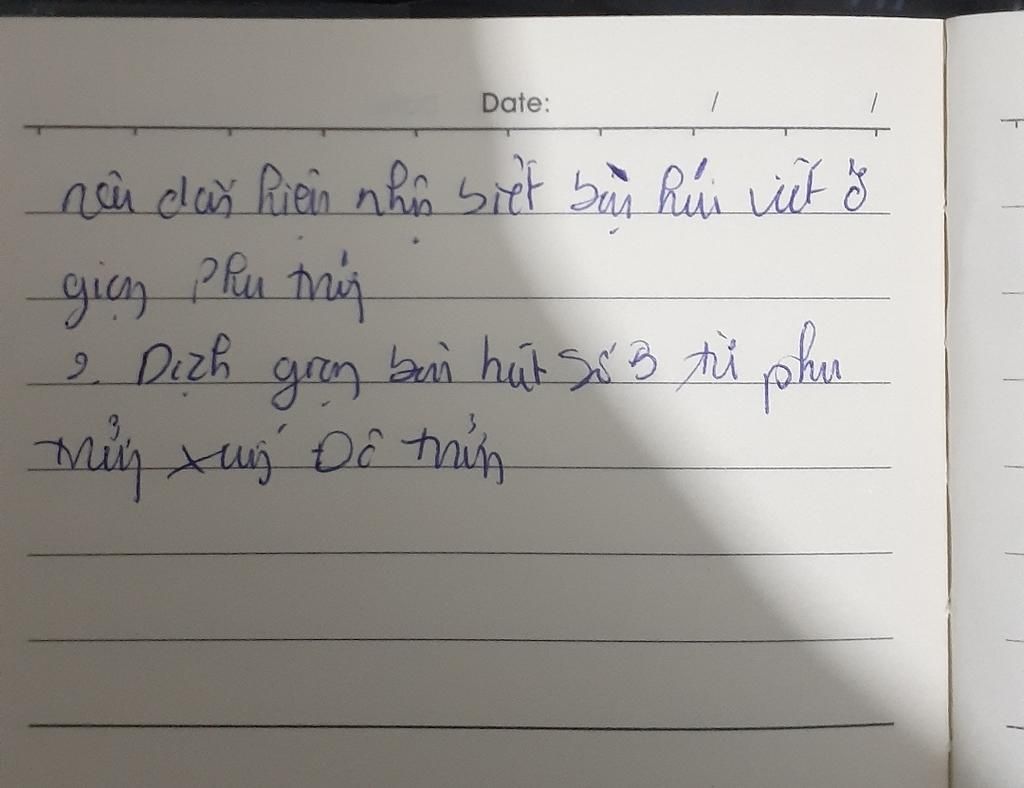 Date: / /
nêu dấu hiệu nhận biết bài hát viết ở
giọng Pha trưởng
2. Dịch giọng bài hát Số 3 từ pha
trưởng xuống Đô trưởng